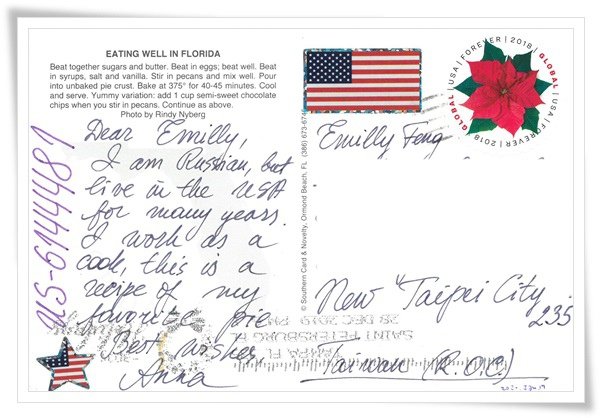 EATING WELL IN FLORIDA
Beat together sugars and butter. Beat in eggs; beat well. Beat
in syrups, salt and vanilla. Stir in pecans and mix well. Pour
into unbaked pie crust. Bake at 375° for 40-45 minutes. Cool
and serve. Yummy variation: add 1 cup semi-sweet chocolate
chips when you stir in pecans. Continue as above.
Photo by Rindy Nyberg
Dear Emilly,
I am Russian, but
live in the USA
for many years.
I work as a
cook, this is a
recipe of my
favorite pie
Best wishes,
Anna
US-6144481
© Southern Card & Novelty, Ormond Beach, FL (386) 673-674
GLOBAL | USA | FOREVER | 2018 | GLOBAL | USA | FOREVER | 2018 |
Emilly Feng
New Taipei City
235
Taiwan (R.O.C)
TAMPA FL
SAINT PETERSBURG FL
28 DEC 2019 PM